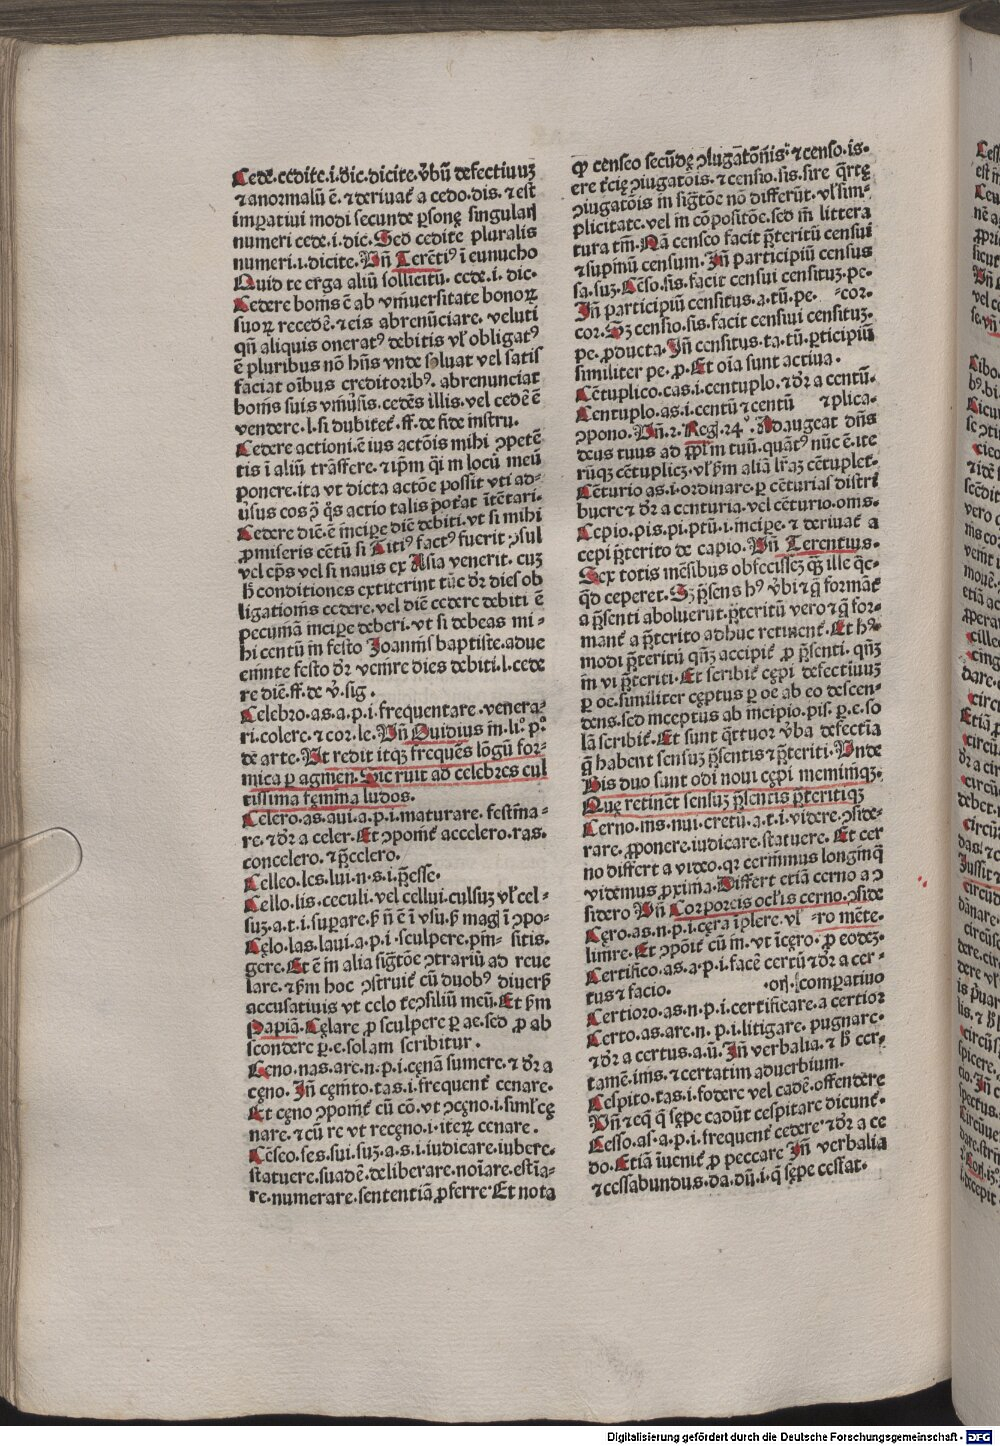 Cede. cedite. i. dic. dicite. v̄bū defectiuuꝫ
⁊ anormalū ē. ⁊ deriuat᷑ a cedo. dis. ⁊ est
imꝑatiui modi secunde ꝑsonę singularꝭ
numeri cede. i. dic. Sed cedite pluralis
numeri. i. dicite. Vn̄ Terēti⁹ ī eunucho
Quid te erga aliū sollicitū. cede. i. dic.
Cedere bonis ē ab vniuersitate bonoꝝ
suoꝝ recedē. ⁊ eis abrenūciare. veluti
qn̄ aliquis onerat⁹ debitis vl᷑ obligat⁹
ē pluribus nō hn̄s vnde soluat vel satis
faciat oībus creditorib⁹. abrenunciat
bonis suis vniūsis. cedēs illis. vel cedē ē
vendere. l. si dubitet᷑. ff. de fide instru.
Cedere actioni ē ius actōis mihi ꝯpetē
tis ī aliū trāsferre. ⁊ ip̄m q̄i in locū meū
ponere. ita vt dicta actōe possit vti ad-
ūsus eos ꝯ q̄s actio talis poterat ītētari.
Cedere diē. ē incipe diē debiti. vt si mihi
ꝓmiseris cētū si Titi⁹ fact⁹ fuerit ꝯsul
vel ep̄s vel si nauis ex Asia venerit. cuꝫ
h̄ conditiones extiterint tūc dr̄ dies ob
ligationis cedere. vel diē cedere debiti ē
pecuniā incipe deberi. vt si debeas mi-
hi centū in festo Joannis baptiste. adue
eniente festo dr̄ venire dies debiti. l. cede
re diē. ff. de v̄. sig.
Celebro. as. a. p. i. frequentare. venera-
ri. colere. ⁊ cor. le. Vn̄ Ouidius in. li°. p°.
de arte. Vt redit itqꝫ frequēs lōgū for-
mica ꝑ agmen. Sic ruit ad celebres cul
tissima fęmina ludos.
Celero. as. aui. a. p. i. maturare. festina-
re. ⁊ dr̄ a celer. Et ꝯponit᷑ accelero. ras.
concelero. ⁊ p̄celero.
Celleo. les. lui. n. s. i. p̄esse.
Cello. lis. ceculi. vel cellui. culsuꝫ vl᷑ cel-
suꝫ. a. t. i. suꝑare. ꝫ n̄ ē ī vsu. ꝫ magꝭ ī ꝯpo-
Cęlo. las. laui. a. p. i. sculpere. pin- sitis.
gere. Et ē in alia siḡtōe ꝯtrariū ad reue
lare. ⁊ ẜm hoc ꝯstruit᷑ cū duob⁹ diuersꝭ
accusatiuis vt celo te ꝯsiliū meū. Et ẜm
Papiā. Cęlare ꝓ sculpere ꝑ ae. sed ꝓ ab
scondere ꝑ. e. solam scribitur.
Cęno. nas. are. n. p. i. cęnā sumere. ⁊ dr̄ a
cęno. Jn̄ cęnito. tas. i. frequent᷑ cenare.
Et cęno ꝯponit᷑ cū cō. vt ꝯcęno. i. siml᷑ cę
nare. ⁊ cū re vt recęno. i. iteꝝ cenare.
Cēseo. ses. sui. suꝫ. a. s. i. iudicare. iubere.
statuere. suadē. deliberare. noīare. estīa-
re. numerare. sententiā ꝓferre. Et nota
ꝙ censeo secūdę ꝯiugatōnis. ⁊ censo. is.
ere tercię ꝯiugatōis. ⁊ censio. sis. sire q̄rtę
ꝯiugatōis in siḡtōe nō differūt. vl᷑ sim-
plicitate. vel in cōpositōe. sed in littera
tura tm̄. Nā censeo facit p̄teritū censui
⁊ supinū censum. Jn̄ participiū census
sa. suꝫ. Cēso. sis. facit censui censituꝫ. pe.
Jn̄ participiū censitus. a. tū. pe. cor.
cor. Sꝫ censio. sis. facit censiui censituꝫ.
pe. ꝓducta. Jn̄ censitus. ta. tū. ꝑticipiū
similiter pe. ꝓ. Et oīa sunt actiua.
Cētuplico. cas. i. centuplo. ⁊ dr̄ a centū.
Centuplo. as. i. centū ⁊ centū ⁊ plica-
ꝯpono. Vn̄. 2. Reg̣. 24°. Adaugeat dn̄s
deus tuus ad pp̄lm tuū. quāt⁹ nūc ē. ite
rūqꝫ cētuplicꝫ. vl᷑ ẜm aliā lr̄aꝫ cētuplet.
Cēturio as. i. ordinare. ꝑ cēturias distri
buere ⁊ dr̄ a centuria. vel cēturio. onis.
Cepio. pis. pi. ptū. i. incipe. ⁊ deriuat᷑ a
cepi p̄terito de capio. Vn̄ Terentius.
Sex totis mēsibus obfecissēꝫ qꝫ ille qe-
q̄d ceperet. Sꝫ p̄sens h⁹ v̄bi ⁊ q̄ formāt᷑
a p̄senti aboluerūt. p̄teritū vero ⁊ q̄ for-
mant᷑ a p̄terito adhuc retinent᷑. Et h⁹
modi p̄teritū qn̄ꝫ accipit᷑ ꝓ p̄senti. qn̄ꝫ
in vi p̄teriti. Et scribit᷑ cępi defectiuuꝫ
ꝑ oe. similiter cęptus ꝑ oe ab eo descen-
dens. sed inceptus ab incipio. pis. ꝑ. e. so
lā scribit᷑. Et sunt q̄ttuor v̄ba defectīa
q̄ habent sensuꝫ p̄sentis ⁊ p̄teriti. Vnde
His duo sunt odi noui cępi meminiqꝫ.
Quę retinēt sensuꝫ p̄sentis p̄teritiqꝫ
Cerno. nis. nui. cretū. a. t. i. videre. ꝯside-
rare. ꝓponere. iudicare. statuere. Et cer
no differt a video. qꝛ cernimus longinq̄
videmus ꝓxima. Differt etiā cerno a ꝯ
sidero Vn̄ Corporeis oclꝭis cerno. ꝯside
Cęro. as. n. p. i. cęra īplere. vl᷑ -ro mēte.
linire. Et ꝯpōit᷑ cū in. vt īcęro. ꝓ eodeꝫ.
Certifico. as. a. p. i. facē certū ⁊ dr̄ a cer-
tus ⁊ facio. .orꝭ. comparatiuo
Certioro. as. n. p. i. certificare. a certior
Certo. as. are. n. p. i. litigare. pugnare.
⁊ dr̄ a certus. a. ū. Jn̄ verbalia. ⁊ h̄ cer-
tamē. inis. ⁊ certatim aduerbium.
Cespito. tas. i. fodere vel cadē. offendere
Vn̄ ⁊ eq̄ q̄ sępe cadūt cespitare dicunt᷑.
Cesso. as. a. p. i. frequent᷑ cedere ⁊ dr̄ a ce
do. Etiā īuenit᷑ ꝓ peccare Jn̄ verbalia
⁊ cessabundus. da. dū. i. q̄ sępe cessat.
Digitalisierung gefördert durch die Deutsche Forschungsgemeinschaft - DFG